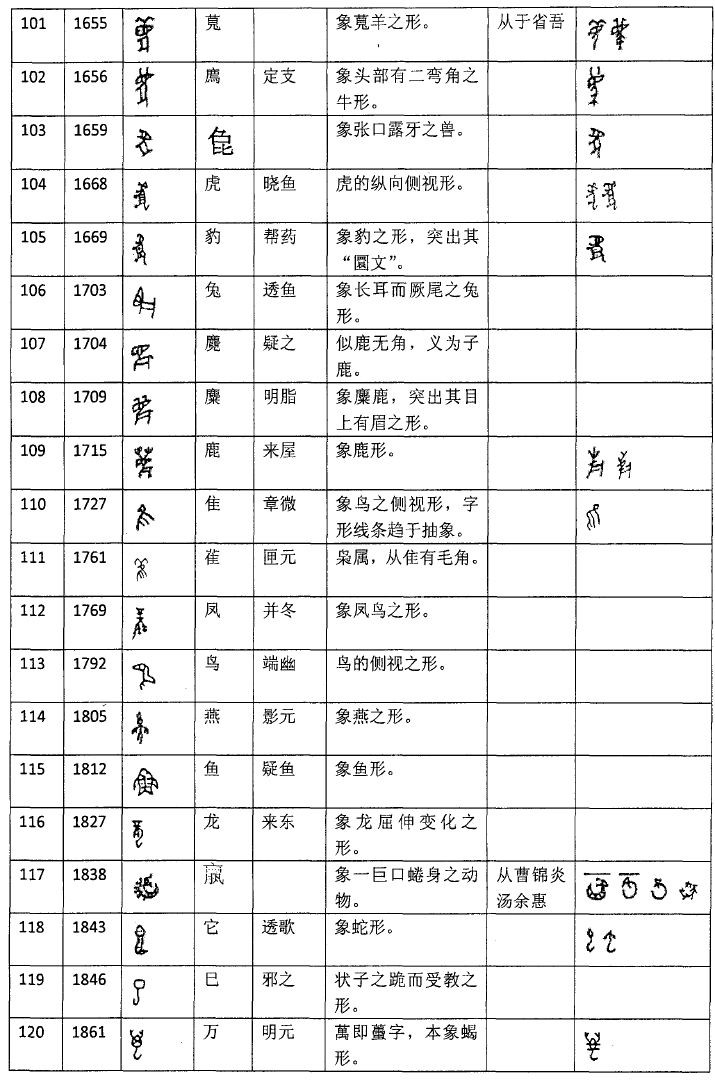 101 1655 萈 象萈羊之形。 从于省吾
102 1656 廌 定支 象头部有二弯角之
牛形。
103 1659 㲋 象张口露牙之兽。
104 1668 虎 晓鱼 虎的纵向侧视形。
105 1669 豹 帮药 象豹之形，突出其
“圜文”。
106 1703 兔 透鱼 象长耳而厥尾之兔
形。
107 1704 麑 疑之 似鹿无角，义为子
鹿。
108 1709 麋 明脂 象麋鹿，突出其目
上有眉之形。
109 1715 鹿 来屋 象鹿形。
110 1727 隹 章微 象鸟之侧视形，字
形线条趋于抽象。
111 1761 萑 匣元 枭属，从隹有毛角。
112 1769 凤 并冬 象凤鸟之形。
113 1792 鸟 端幽 鸟的侧视之形。
114 1805 燕 影元 象燕之形。
115 1812 鱼 疑鱼 象鱼形。
116 1827 龙 来东 象龙屈伸变化之
形。
117 1838 象一巨口蜷身之动 从曹锦炎
物。 汤余惠
118 1843 它 透歌 象蛇形。
119 1846 巳 邪之 状子之跪而受教之
形。
120 1861 万 明元 萬即蠆字，本象蝎
形。